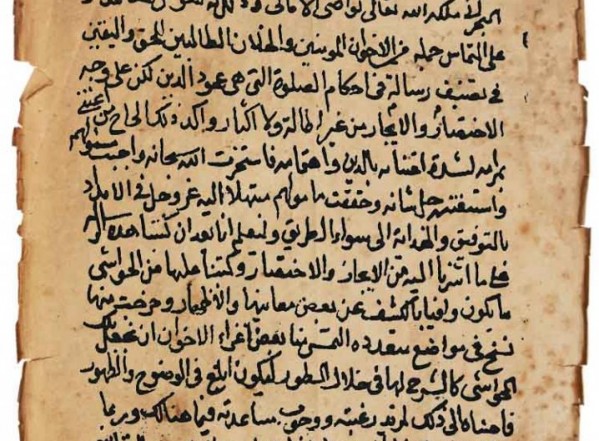 البحر في ملكه الله تعالى نواصي الاماني
على التماس جملة من الاخوان المومنين والخلان الطالبين الحق واليقين
في تصنيف رسالة في احكام الصلوة التي هي عمود الدين لكن على وجه
الاختصار والايجاز من غير اطالة ولا اكثار واكد ذلك الحاح من
بمرامه لشدة اعتنائه بالدين واهتمامه فاستخرت الله سبحانه واجبت سؤلهم
واستعنته جل شانه وحققت مامولهم مبتهلا اليه عز وجل في الامداد
بالتوفيق والهداية الى سواء الطريق وليعلم انا بعد ان كتبنا هذه الرسالة
على ما اشرنا اليه من الايجاز والاختصار وكتبنا عليها من الحواشي
ما يكون وافيا بالكشف عن بعض معانيها والاظهار وخرجت منها
نسخ في مواضع متعدده التمس منا بعض اعزاء الاخوان ان نجعل تلك
الحواشي كالشرح لها في خلال السطور ليكون ابلغ في الوضوح والظهور
فاجبناه الى ذلك لمزيد رغبته ووجوب مساعدته فيما هنالك وربما